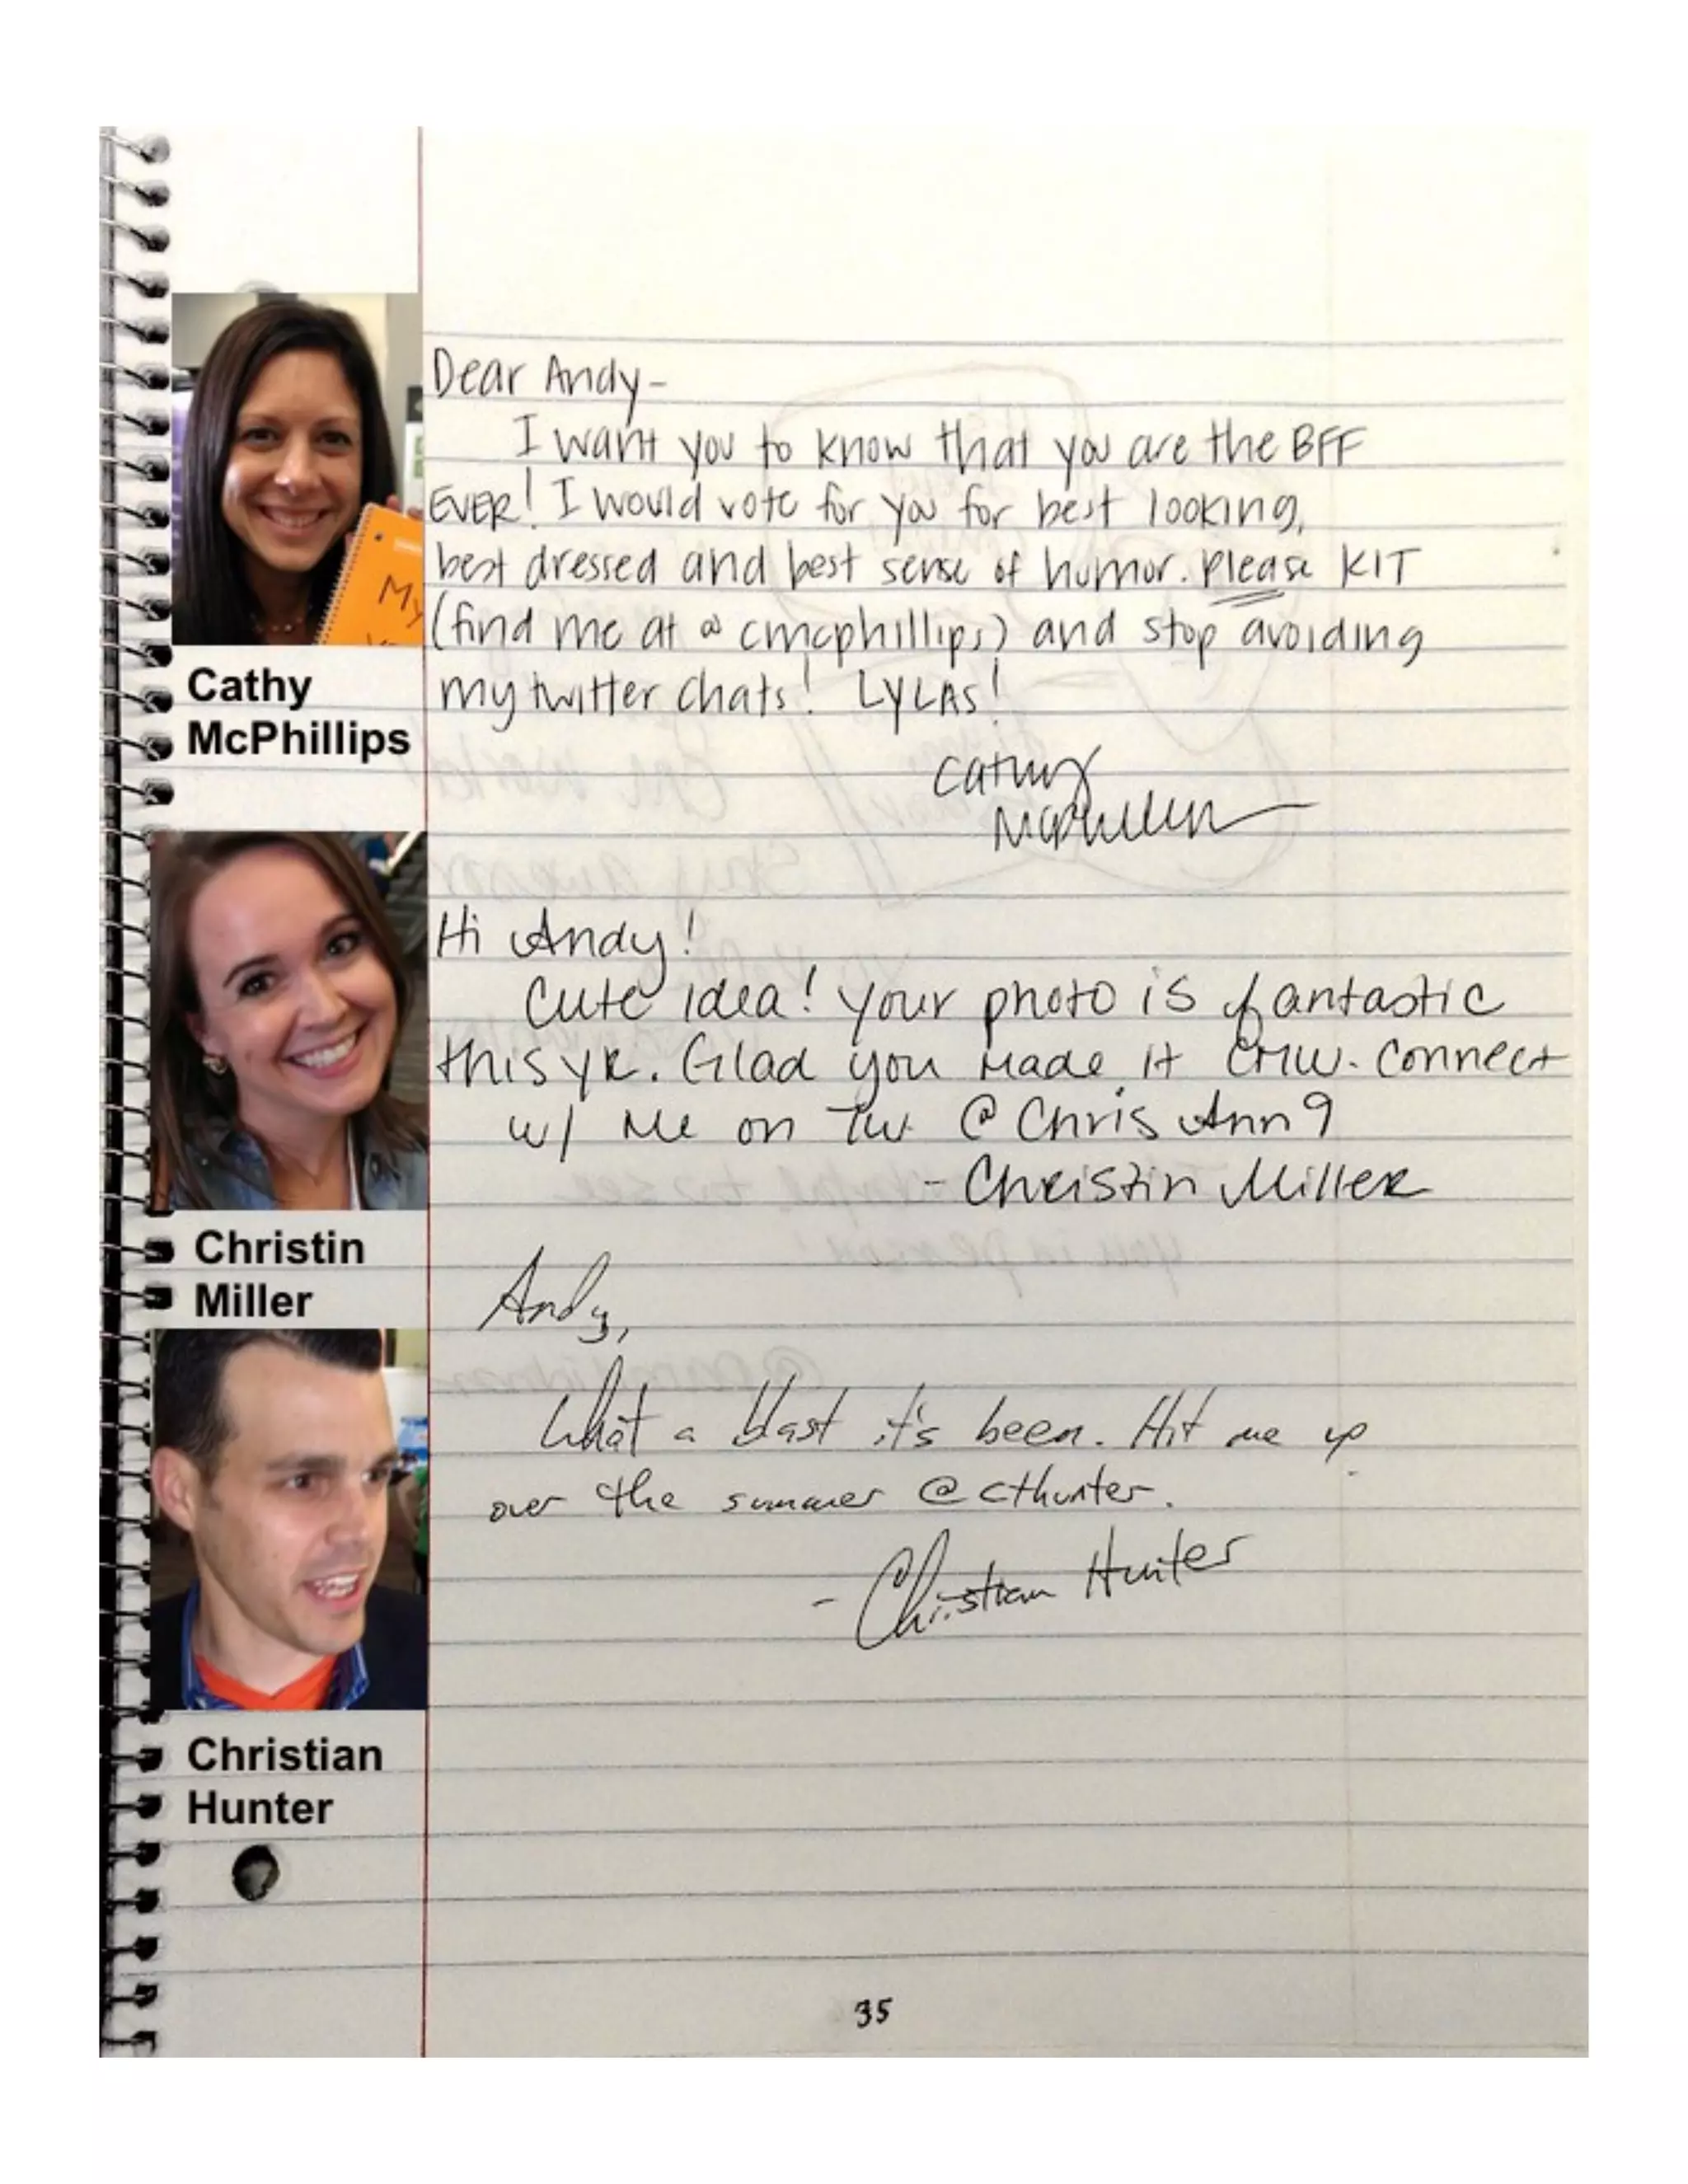 Dear Andy-
I want you to know that you are the BFF
EVER! I would vote for you for best looking,
best dressed and best sense of humor. Please KIT
(find me at @cmcphillips) and stop avoiding
my twitter chats! LYLAS!
Cathy
McPhillips
My
Cathy
McPhillips
Hi Andy!
Cute idea! Your photo is fantastic
this yr. Glad you made it CMW. Connect
w/ me on Tw @ChrisAnn9
- Christin Miller
Christin
Miller
Andy,
What a blast it's been. Hit me up
over the summer @cthunter.
- Christian Hunter
Christian
Hunter
35